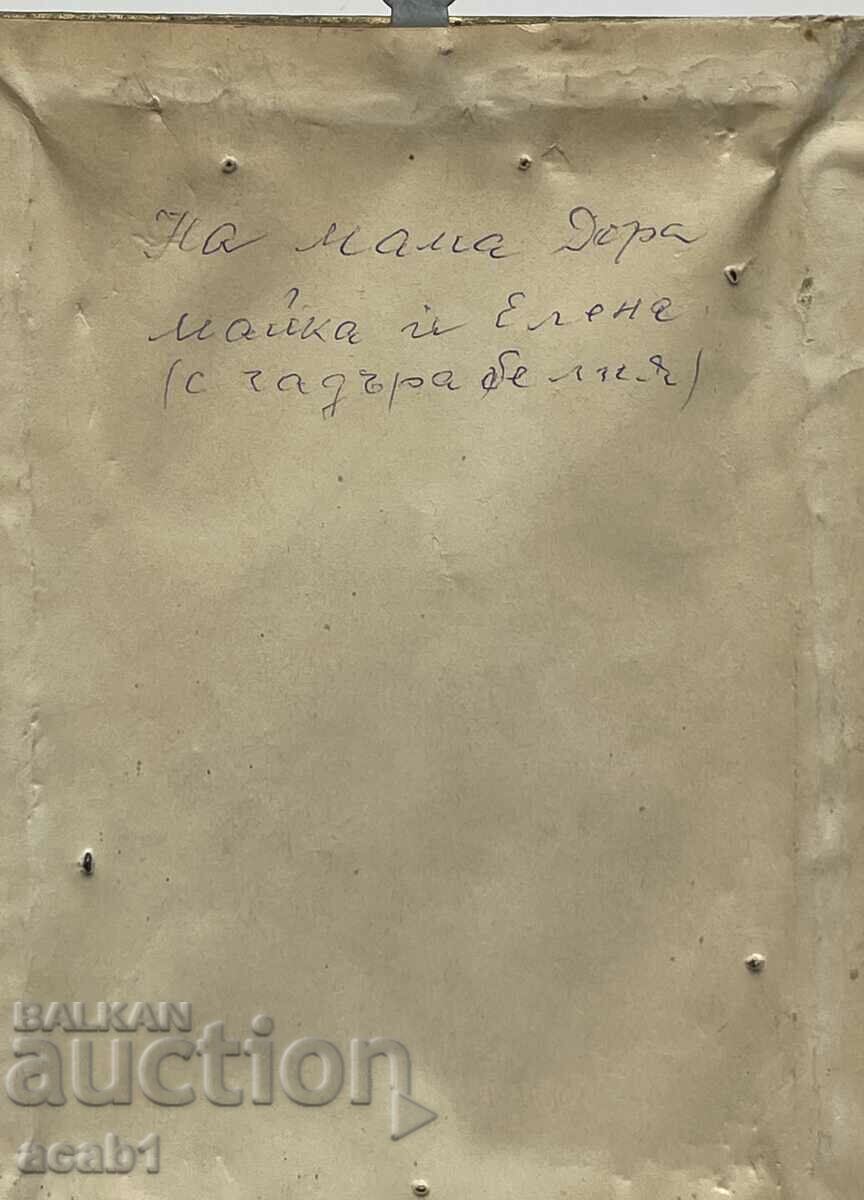 На мама Дора
майка ѝ Елена
(с чадъра белия)
BALKAN
auction
acab1